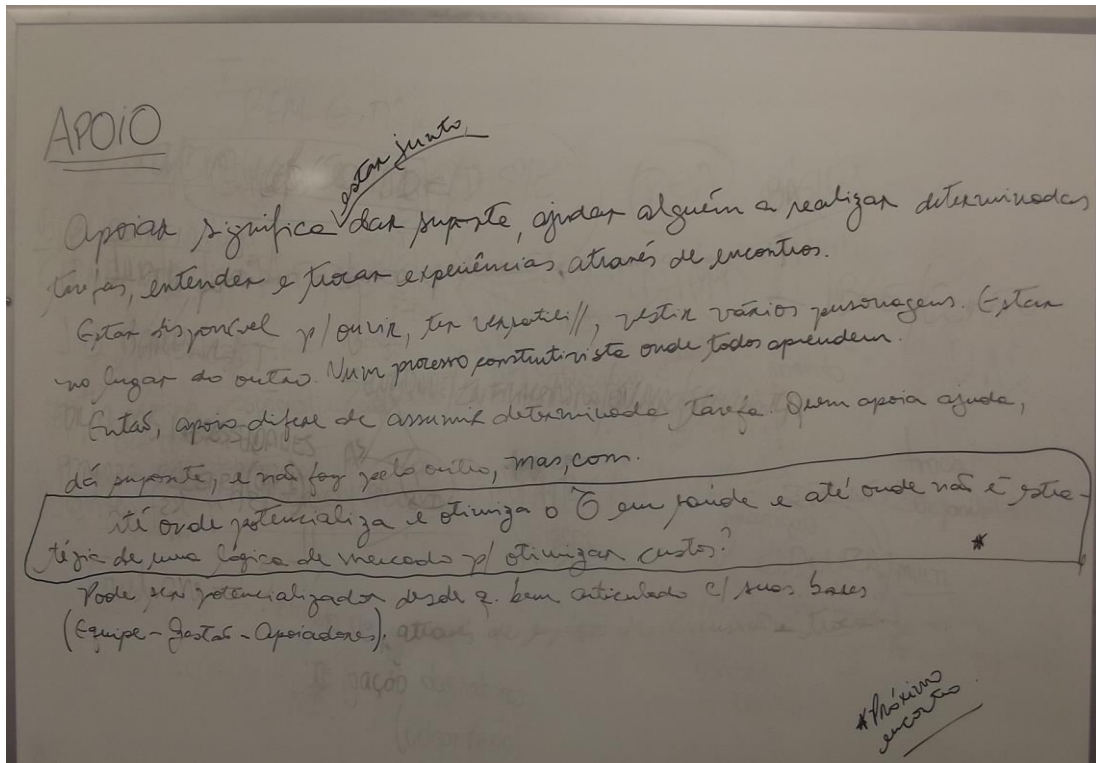 APOIO
estar junto,
Apoiar significa dar suporte, ajudar alguém a realizar determinadas
tarefas, entender e trocar experiências, através de encontros.
Estar disponível p/ ouvir, ter versatili//, vestir vários personagens. Estar
no lugar do outro. Num processo construtivista onde todos aprendem.
Então, apoio difere de assumir determinada tarefa. Quem apoia ajuda,
dá suporte, e não faz pelo outro, mas, com.
Até onde potencializa e otimiza o em saúde e até onde não é estra-
tégia de uma lógica de mercado p/ otimizar custos? *
Pode ser potencializador desde q. bem articulado c/ suas bases
(Equipe - Gestão - Apoiadores),
* Próximo
encontro